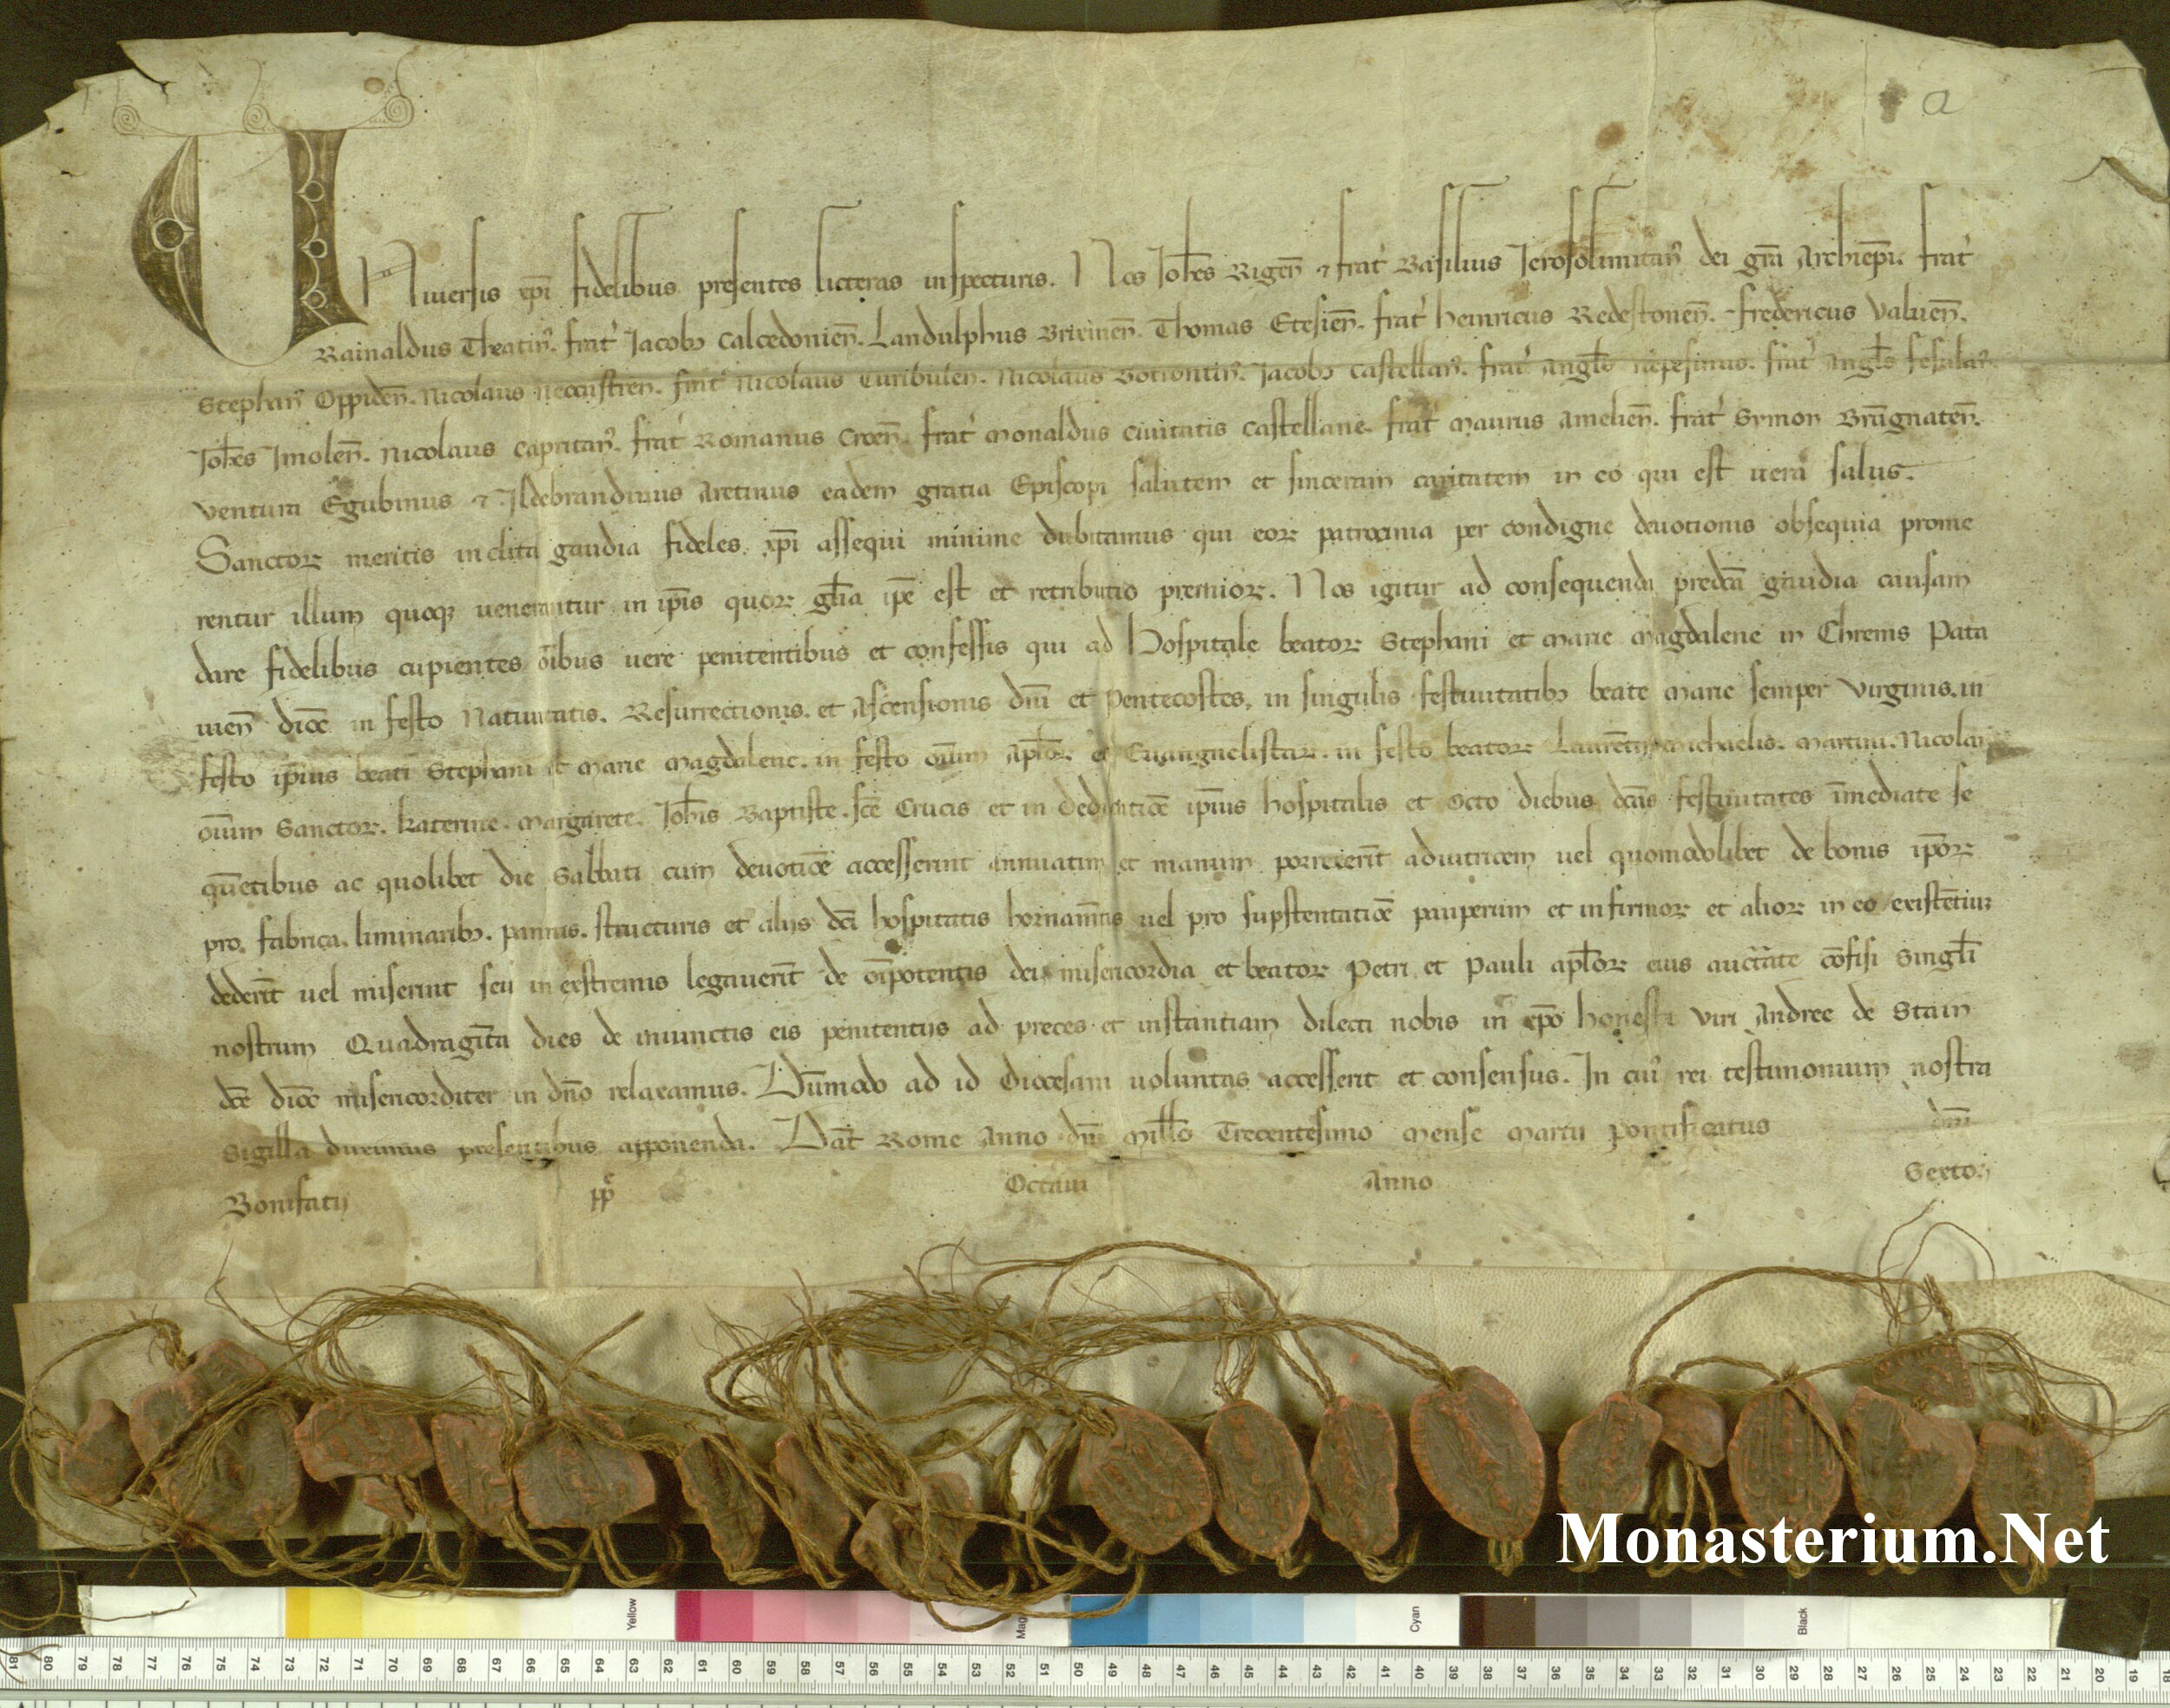 a
UNiuersis xp̄i fidelibus presentes licteras inspecturis. Nos Joh̄es Rigeñ ⁊ frat̄ Basilius Jerosolimitañ dei gr̄a Archiep̄i frat̄
Rainaldus Theatiñ. frat̄ Jacobꝰ Calcedonieñ. Landulphus Brixineñ. Thomas Etesieñ. frat̄ heinricus Redestoneñ. fredericus Valueñ.
Stephañ Oppideñ. Nicolaus Neocastreñ. frat̄ Nicolaus Turibuleñ. Nicolaus Botrontiñ. Jacobꝰ Castellañ. frat̄ Angl̄s Nepesinus. frat̄ Angl̄s fesulañ.
Joh̄es Jmoleñ. Nicolaus Capritañ. frat̄ Romanus Croeñ. frat̄ Monaldus Ciuitatis Castellane. frat̄ Maurus Amelieñ. frat̄ Symon Brūgnateñ.
Ventura Egubinus ⁊ Jldebrandinus Aretinus eadem gratia Episcopi salutem et sinceram caritatem in eo qui est uera salus.
Sanctoꝝ meritis inclita gaudia fideles xp̄i assequi minime dubitamus qui eoꝝ patrocinia per condigne deuotionis obsequia prome
rentur illum quoqꝫ uenerantur in ip̄is quoꝝ gl̄ia ip̄e est et retributio premioꝝ. Nos igitur ad consequenda predc̄a gaudia causam
dare fidelibus cupientes om̄ibus uere penitentibus et confessis qui ad Hospitale beatoꝝ Stephani et Marie Magdalene in Chrems Pata
uieñ dioc̄ in festo Natiuitatis. Resurrectionis. et Ascensionis dn̄i et Pentecostes, in singulis festiuitatibꝰ beate Marie semper Virginis. in
festo ip̄ius beati Stephani et Marie Magdalene. in festo om̄ium Apl̄oꝝ et Euanguelistaꝝ. in festo beatoꝝ Laurētij Michaelis. Martini. Nicolai
om̄ium Sanctoꝝ. Katerine. Margarete. Joh̄is Baptiste. sc̄e Crucis et in dedicatiōe ip̄ius hospitalis et octo diebus dc̄as festiuitates īmediate se
quētibus ac quolibet die Sabbati cum deuotiōe accesserint annuatim et manum porrexerīt adiutricem uel quomodolibet de bonis ip̄oꝝ
pro fabrica. liminaribꝰ. pannis. structuris et alijs dc̄i hospitatis hornam̄tis uel pro supstentatiōe pauperum et infirmoꝝ et alioꝝ in eo existētiuꝫ
dederīt uel miserint seu in exstremis legauerīt de om̄ipotentis dei misericordia et beatoꝝ Petri et Pauli apl̄oꝝ eius auctātate cōfisi Singl̄i
nostrum Quadragīta dies de iniunctis eis penitentijs ad preces et instantiam dilecti nobis in xp̄o honesti Viri Andree de Stain
dc̄e dioc̄ misericorditer in dn̄o relaxamus. Dūmodo ad id diocesani uoluntas accesserit et consensus. In cuiꝰ rei testimonium nostra
Sigilla duximus presentibus apponenda. Dat̄ Rome Anno dn̄i Mill̄o Trecentesimo Mense Martij pontificatus dn̄i
Bonifatij pp̄ Octaui Anno Sexto.
Monasterium.Net
Yellow Cyan Black
81 80 79 78 77 76 75 74 73 72 71 70 69 68 67 66 65 64 63 62 61 60 59 58 57 56 55 54 53 52 51 50 49 48 47 46 45 44 43 42 41 40 39 38 37 36 35 34 33 32 31 30 29 28 27 26 25 24 23 22 21 20 19 18